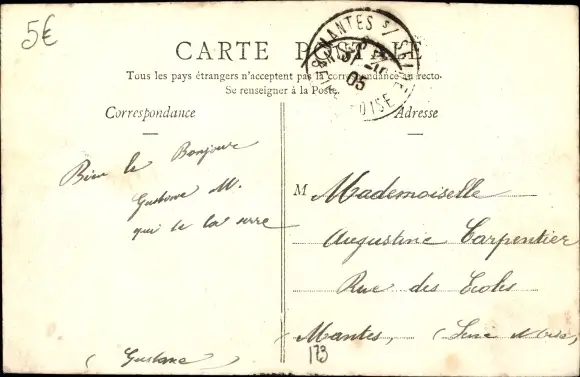 5€
CARTE POSTALE
Tous les pays étrangers n'acceptent pas la correspondance au recto.
Se renseigner à la Poste.
MANTES S/ SEINE
05
OISE
Correspondance
Adresse
Bien le Bonjour
Gustave M.
qui te la serre
(Gustave)
M Mademoiselle
Augustine Carpentier
Rue des Ecoles
Mantes, (Seine
173